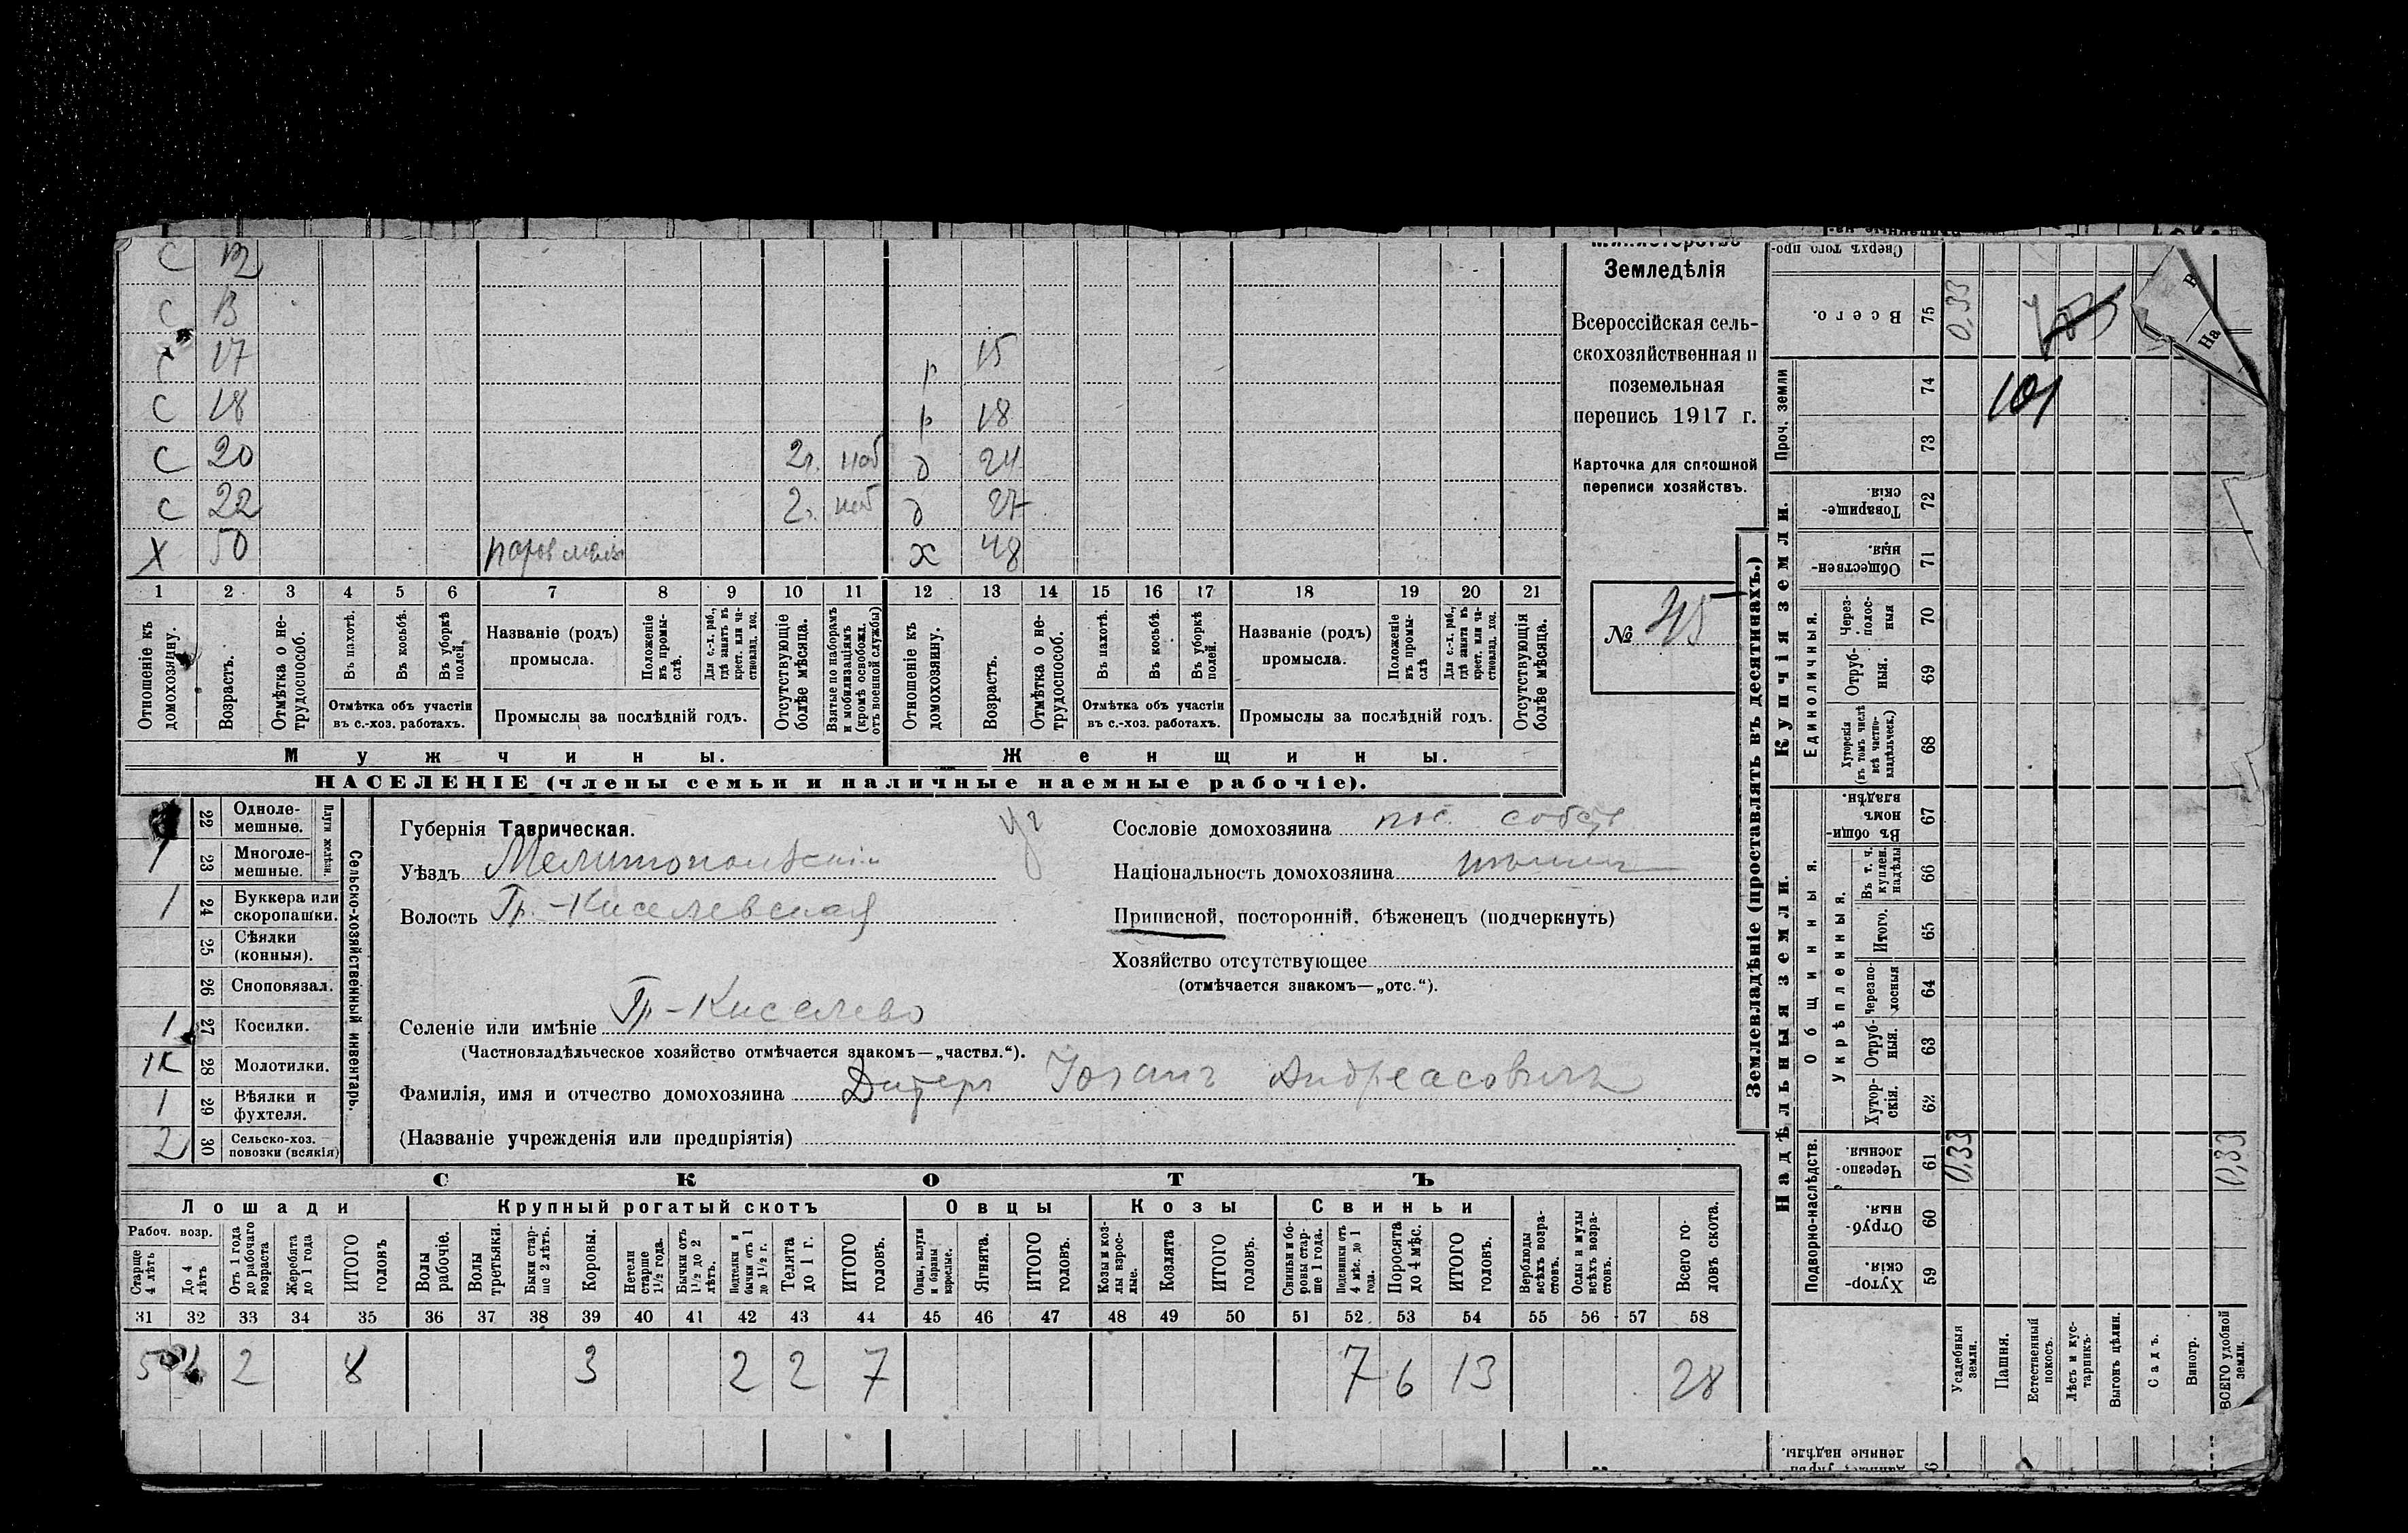 С 12
С 13
С 17 р 15
С 18 р 18
С 20 2 г. моб д 24
С 22 2 г. моб д 27
Х 50 х 48
1 2 3 4 5 6 7 8 9 10 11 12 13 14 15 16 17 18 19 20 21
Отношеніе къ домохозяину.
Возрастъ.
Отмѣтка о не-трудоспособ.
Въ пахотѣ.
Въ косьбѣ.
Въ уборкѣ полей.
Отмѣтка объ участіи въ с.-хоз. работахъ.
Названіе (родъ) промысла.
Положеніе въ промы-слѣ.
Для с.-х. раб., гдѣ занятъ въ крест. или ча-стновлад. хоз.
Промыслы за послѣдній годъ.
Отсутствующіе болѣе мѣсяца.
Взятые по наборамъ и мобилизаціямъ (кромѣ освобожд. отъ военной службы)
Отношеніе къ домохозяину.
Возрастъ.
Отмѣтка о не-трудоспособ.
Въ пахотѣ.
Въ косьбѣ.
Въ уборкѣ полей.
Отмѣтка объ участіи въ с.-хоз. работахъ.
Названіе (родъ) промысла.
Положеніе въ промы-слѣ
Для с.-х. раб., гдѣ занята въ крест. или ча-стновлад. хоз.
Промыслы за послѣдній годъ.
Отсутствующія болѣе мѣсяца.
Мужчины. Женщины.
НАСЕЛЕНІЕ (члены семьи и наличные наемные рабочіе).
Министерство
Земледѣлія
Всероссійская сель-
скохозяйственная и
поземельная
перепись 1917 г.
Карточка для сплошной
переписи хозяйствъ.
№ 45
22 Одноле-мешные.
1 23 Многоле-мешные.
Плуги желѣзн.
1 24 Буккера или скоропашки.
25 Сѣялки (конныя).
26 Сноповязал.
1 27 Косилки.
1К 28 Молотилки.
1 29 Вѣялки и фухтеля.
2 30 Сельско-хоз. повозки (всякія)
Сельско-хозяйственный инвентарь.
Губернія Таврическая.
Уѣздъ Мелитопольскій
Волость Гр.-Киселевская
Селеніе или имѣніе Гр-Киселево
(Частновладѣльческое хозяйство отмѣчается знакомъ—„частвл.“).
Фамилія, имя и отчество домохозяина Дитеръ Іоганъ Андреасовичъ
(Названіе учрежденія или предпріятія)
Сословіе домохозяина пос. собств
Національность домохозяина нѣмецъ
Приписной, посторонній, бѣженецъ (подчеркнуть)
Хозяйство отсутствующее
(отмѣчается знакомъ—„отс.“).
СКОТЪ
Лошади Крупный рогатый скотъ Овцы Козы Свиньи
Рабоч. возр.
Старше 4 лѣтъ
До 4 лѣтъ
Отъ 1 года до рабочаго возраста
Жеребята до 1 года
ИТОГО головъ
Волы рабочіе.
Волы третьяки.
Быки стар-ше 2 лѣтъ.
Коровы.
Нетели старше 1½ года.
Бычки отъ 1½ до 2 лѣтъ.
Подтелки и бычки отъ 1 до 1½ г.
Телята до 1 г.
ИТОГО головъ.
Овцы, валухи и бараны взрослые.
Ягнята.
ИТОГО головъ.
Козы и коз-лы взрос-лые.
Козлята
ИТОГО головъ.
Свиньи и бо-ровы стар-ше 1 года.
Подсвинки отъ 4 мѣс. до 1 года.
Поросята до 4 мѣс.
ИТОГО головъ.
Верблюды всѣхъ возра-стовъ.
Ослы и мулы всѣхъ возра-стовъ.
Всего го-ловъ скота.
31 32 33 34 35 36 37 38 39 40 41 42 43 44 45 46 47 48 49 50 51 52 53 54 55 56 57 58
5 2 8 3 2 2 7 7 6 13 28
Землевладѣніе (проставлять въ десятинахъ.)
Надѣльныя земли. Купчія земли. Проч. земли
Подворно-наслѣдств.
Общинныя.
Укрѣпленныя.
Единоличныя.
Сверхъ того про-
Всего. 75 0,33
74 101
73
Товарище-скія. 72
Обществен-ныя. 71
Через-полос-ныя 70
Отруб-ныя. 69
Хуторскія (въ томъ числѣ всѣ частно-владѣльческ.) 68
Въ общи-номъ владѣн. 67
Въ т. ч. куплен. надѣлы 66
Итого. 65
Черезпо-лосныя 64
Отруб-ныя. 63
Хутор-скія. 62
Черезпо-лосныя. 61 0,33 0,33
Отруб-ныя. 60
Хутор-скія. 59
Усадебныя земли.
Пашня.
Естественный покосъ.
Лѣсъ и кус-тарникъ.
Выгонъ цѣлин.
Садъ.
Виногр.
ВСЕГО удобной земли.
На
ленные надѣлы.